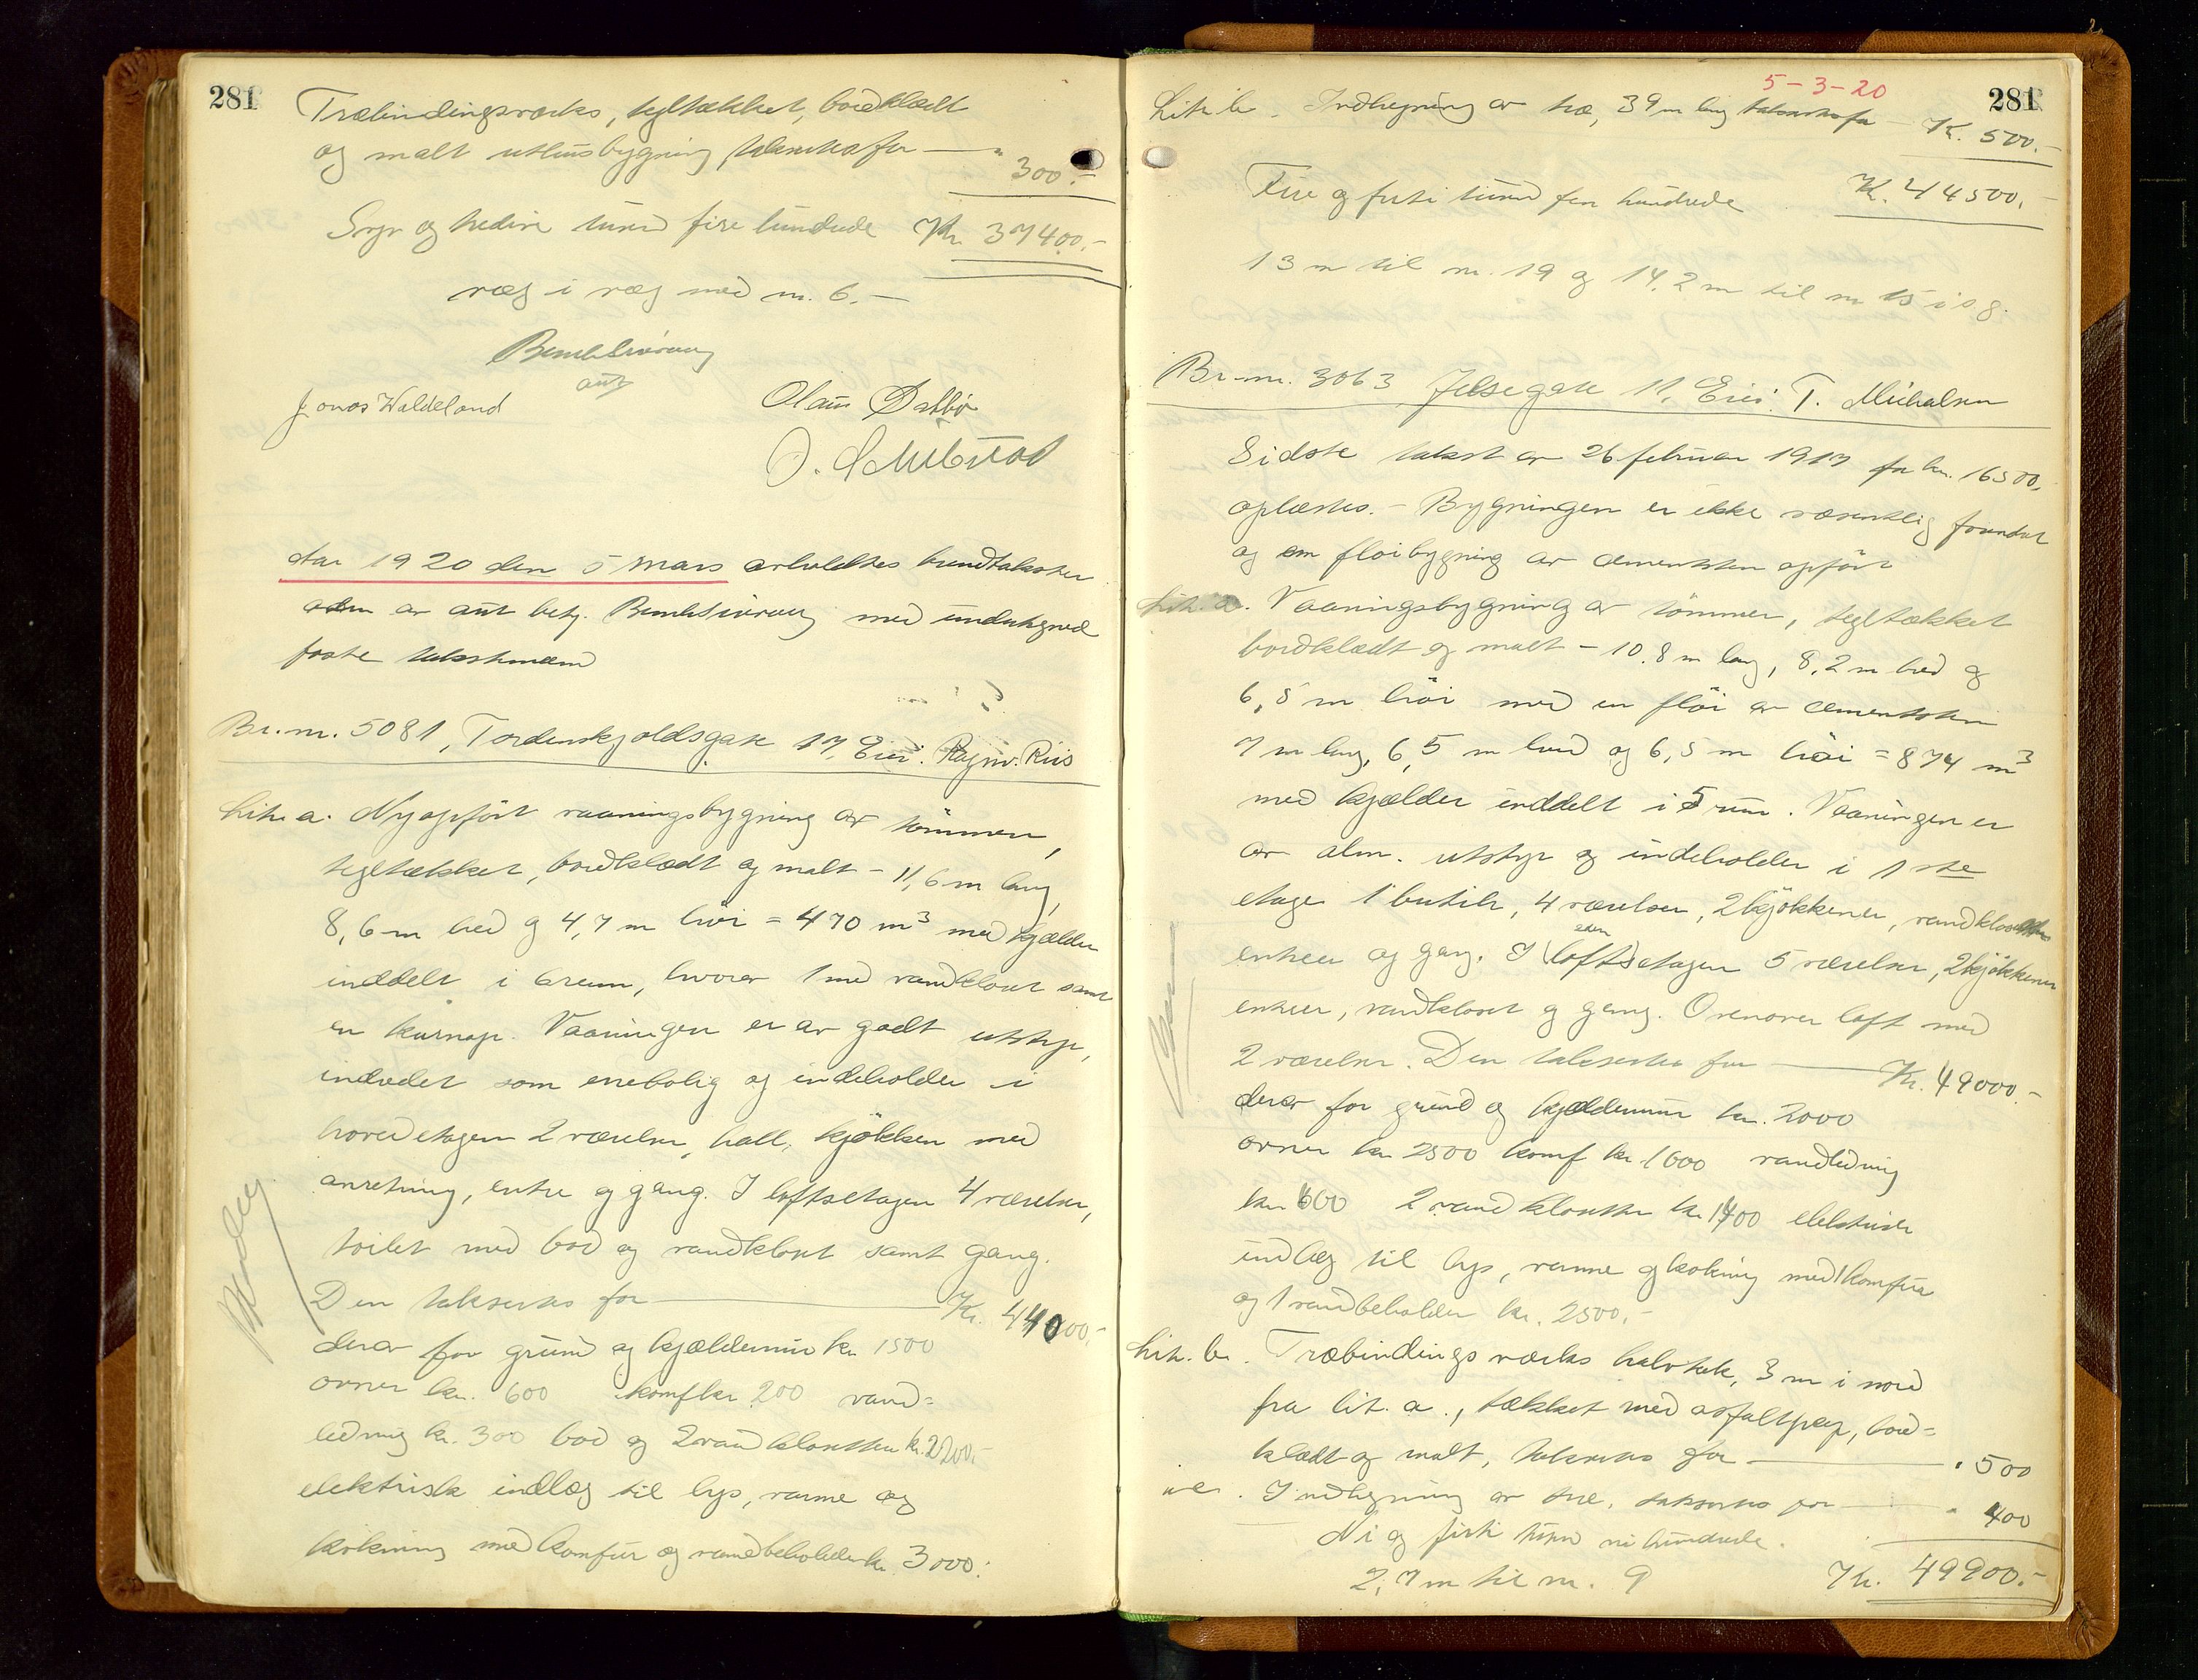 281
Træbindingsverks, tegltækket, bordklædt
og malt uthusbygning takseres for — " 300.-
Syv og tredive tusind fire hundrede Kr. 37400.-
væg i væg med nr. 6.-
aut
Jonas Waldeland
Olaus Dalbø
Aar 1920 den 5 mars avholdtes brandtakster
av aut betj. med undertegnede
faste takstmænd
Br.nr. 5081, Tordenskjoldsgate 17, Eier: Ragnv. Riis
Litr. a. Nyopført vaaningsbygning av tømmer,
tegltækket, bordklædt og malt - 11,6 m lang,
8,6 m bred og 4,7 m høi = 470 m³ med kjælder
inddelt i 6 rum, hvorav 1 med vandkloset samt
en karnap. Vaaningen er av godt utstyr,
indredet som enebolig og indeholder i
hovedetagen 2 værelser, hall, kjøkken med
anretning, entre og gang. I loftsetagen 4 værelser,
toilet med bad og vandkloset samt gang.
Den takseres for — Kr. 44000.-
derav for grund og kjældermur kr. 1500
ovner kr. 600 komf kr 200 vand=
ledning kr. 300 bad og 2 vandklosetter kr. 2200.-
elektrisk indlæg til lys, varme og
kokning med komfur og vandbeholder kr. 3000.
5-3-20
281
Litr. b. Indhegning av træ, 39 m lang takseres for — Kr. 500.-
Fire og firti tusind fem hundrede Kr. 44500.-
13 m til nr. 19 og 14,2 m til nr 15 i s g.
Br.nr. 3063 Jelsegate 11, Eier: T. Michalsen
Sidste takst av 26 februar 1917 for kr. 16500,
oplæstes. - Bygningen er ikke væsentlig forandret
og en fløibygning av cementsten opført
Litr. a. Vaaningsbygning av tømmer, tegltækket
bordklædt og malt - 10.8 m lang, 8,2 m bred og
6,5 m høi med en fløi av cementsten
7 m lang, 6,5 m bred og 6,5 m høi = 874 m³
med kjælder inddelt i 5 rum. Vaaningen er
av alm. utstyr og indeholder i 1ste
etage 1 butik, 4 værelser, 2 kjøkkener, vandkloset
entreer og gang. I (lofts)etagen 5 værelser, 2 kjøkkener
entreer, vandkloset og gang. Ovenover loft med
2 værelser. Den takseres for — Kr. 49000.-
derav for grund og kjældermur kr. 2000
ovner kr. 2500 komf kr. 1000 vandledning
kr. 600 2 vandklosetter kr 1400 elektrisk
indlæg til lys, varme og kokning med 1 komfur
og 1 vandbeholder kr. 2500.-
Litr. b. Træbindingsverks halvtak, 3 m i nord
fra lit. a., tækket med asfaltpap, bord=
klædt og malt, takseres for — " 500
" c. Indhegning av træ, takseres for — " 400
Ni og firti tusen ni hundrede.
2,7 m til nr. 9 Kr. 49900.-